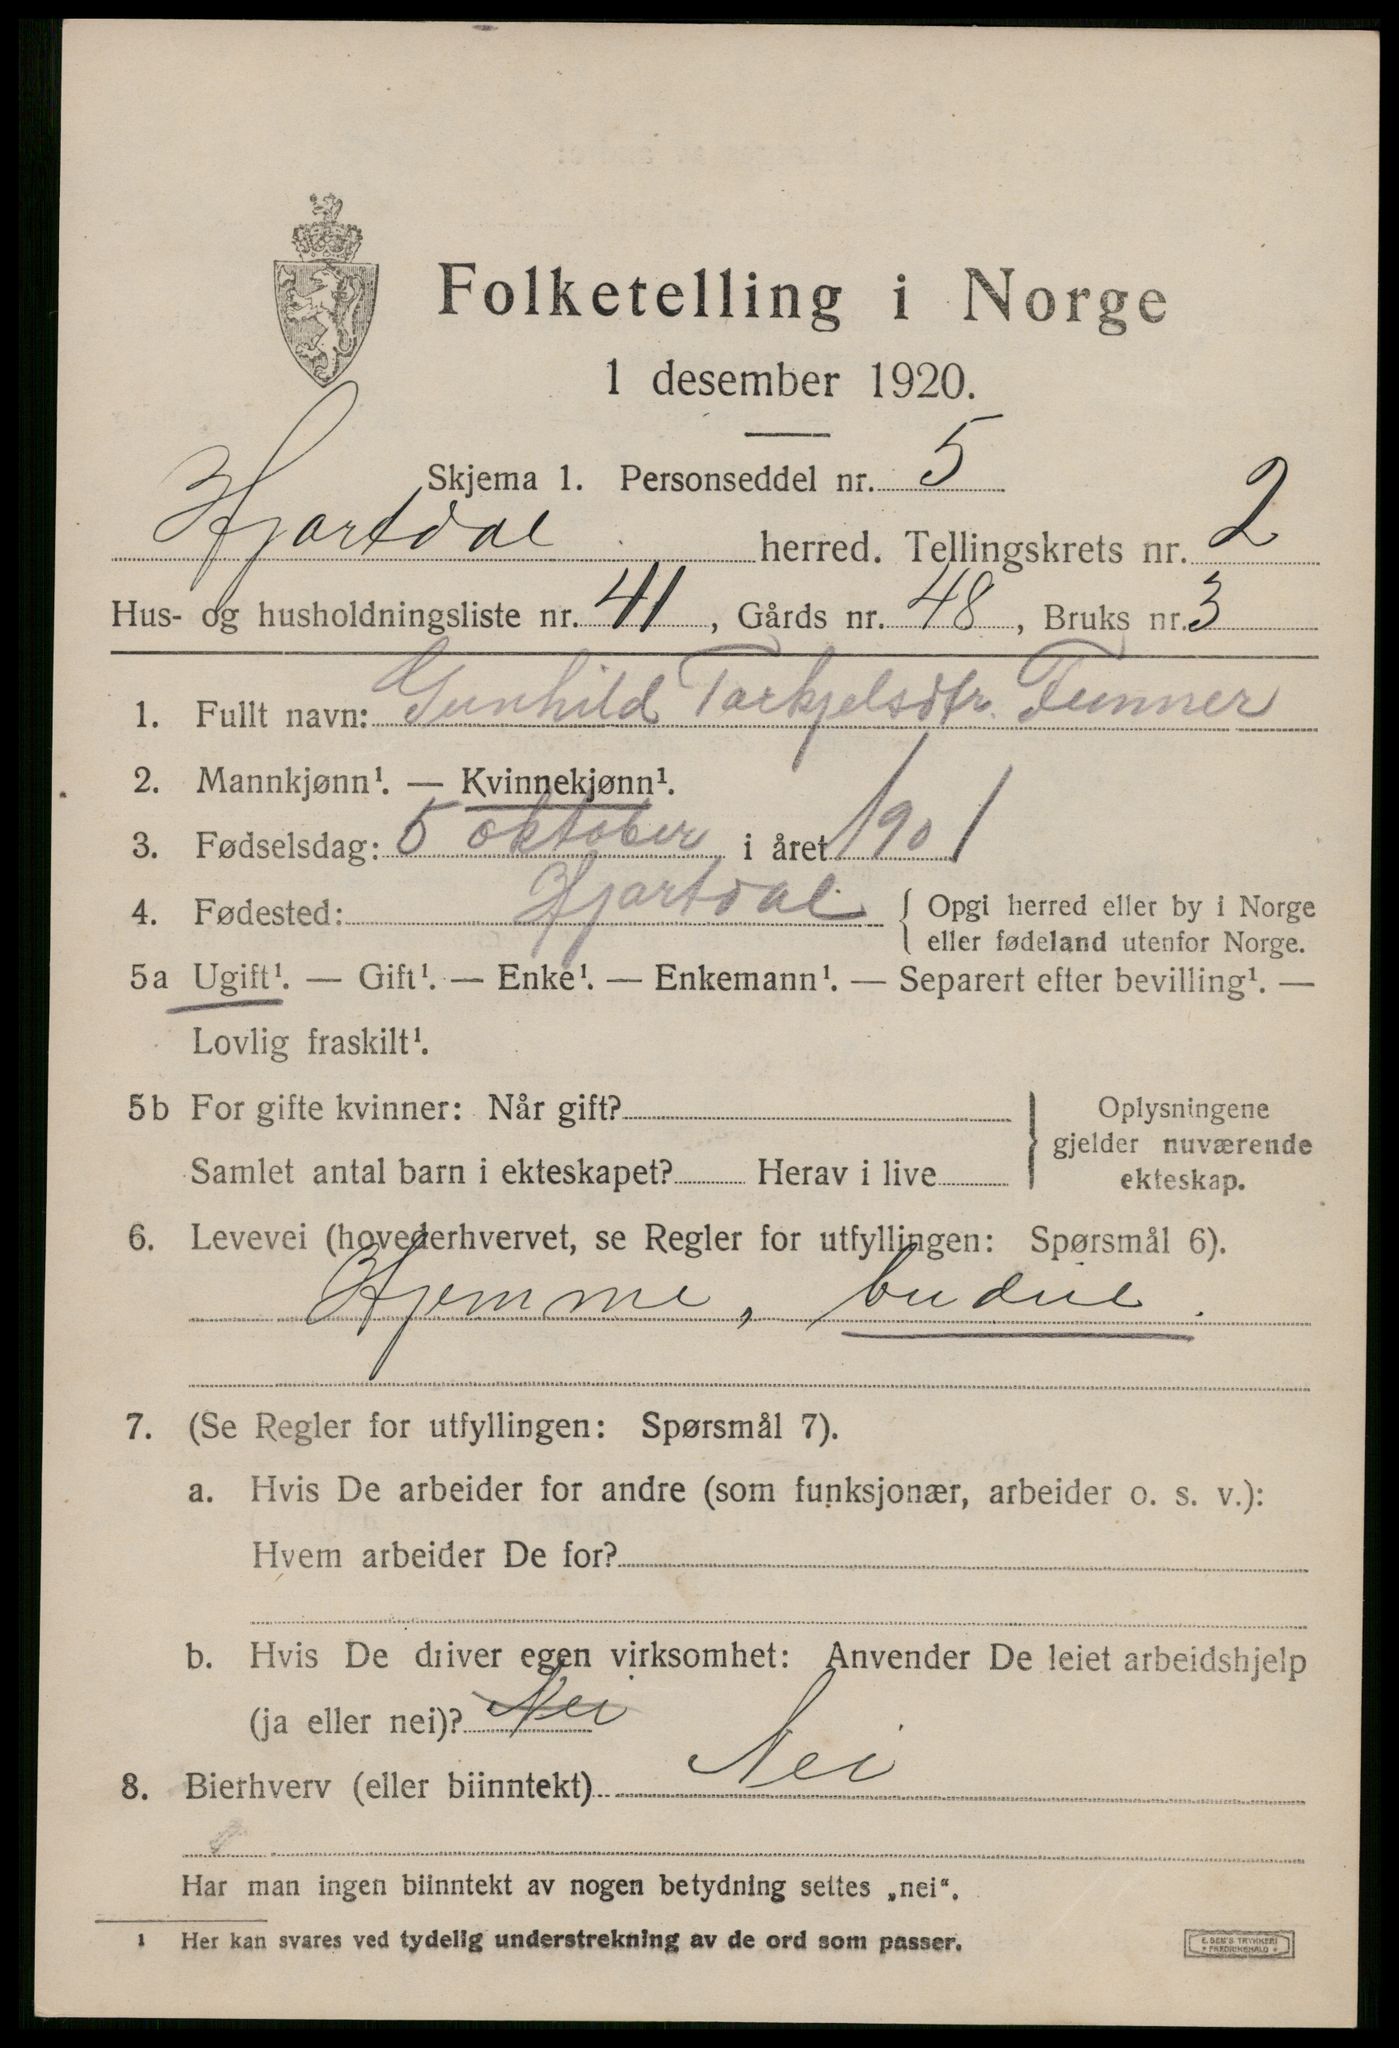 Folketelling i Norge
1 desember 1920.
Skjema 1. Personseddel nr. 5
Hjartdal herred. Tellingskrets nr. 2
Hus- og husholdningsliste nr. 41, Gårds nr. 48, Bruks nr. 3
1. Fullt navn: Gunhild Tarkjelsdtr. Funner
2. Mannkjønn¹. — Kvinnekjønn¹.
3. Fødselsdag: 5 oktober i året 1901
4. Fødested: Hjartdal { Opgi herred eller by i Norge
eller fødeland utenfor Norge.
5a Ugift¹. — Gift¹. — Enke¹. — Enkemann¹. — Separert efter bevilling¹. —
Lovlig fraskilt¹.
5b For gifte kvinner: Når gift? } Oplysningene
gjelder nuværende
Samlet antal barn i ekteskapet? Herav i live ekteskap.
6. Levevei (hovederhvervet, se Regler for utfyllingen: Spørsmål 6).
Hjemme, budeie.
7. (Se Regler for utfyllingen: Spørsmål 7).
a. Hvis De arbeider for andre (som funksjonær, arbeider o. s. v.):
Hvem arbeider De for?
b. Hvis De driver egen virksomhet: Anvender De leiet arbeidshjelp
(ja eller nei)? Nei
8. Bierhverv (eller biinntekt) Nei
Har man ingen biinntekt av nogen betydning settes „nei“.
¹ Her kan svares ved tydelig understrekning av de ord som passer.
E. SEM'S TRYKKERI
* FREDRIKSHALD *